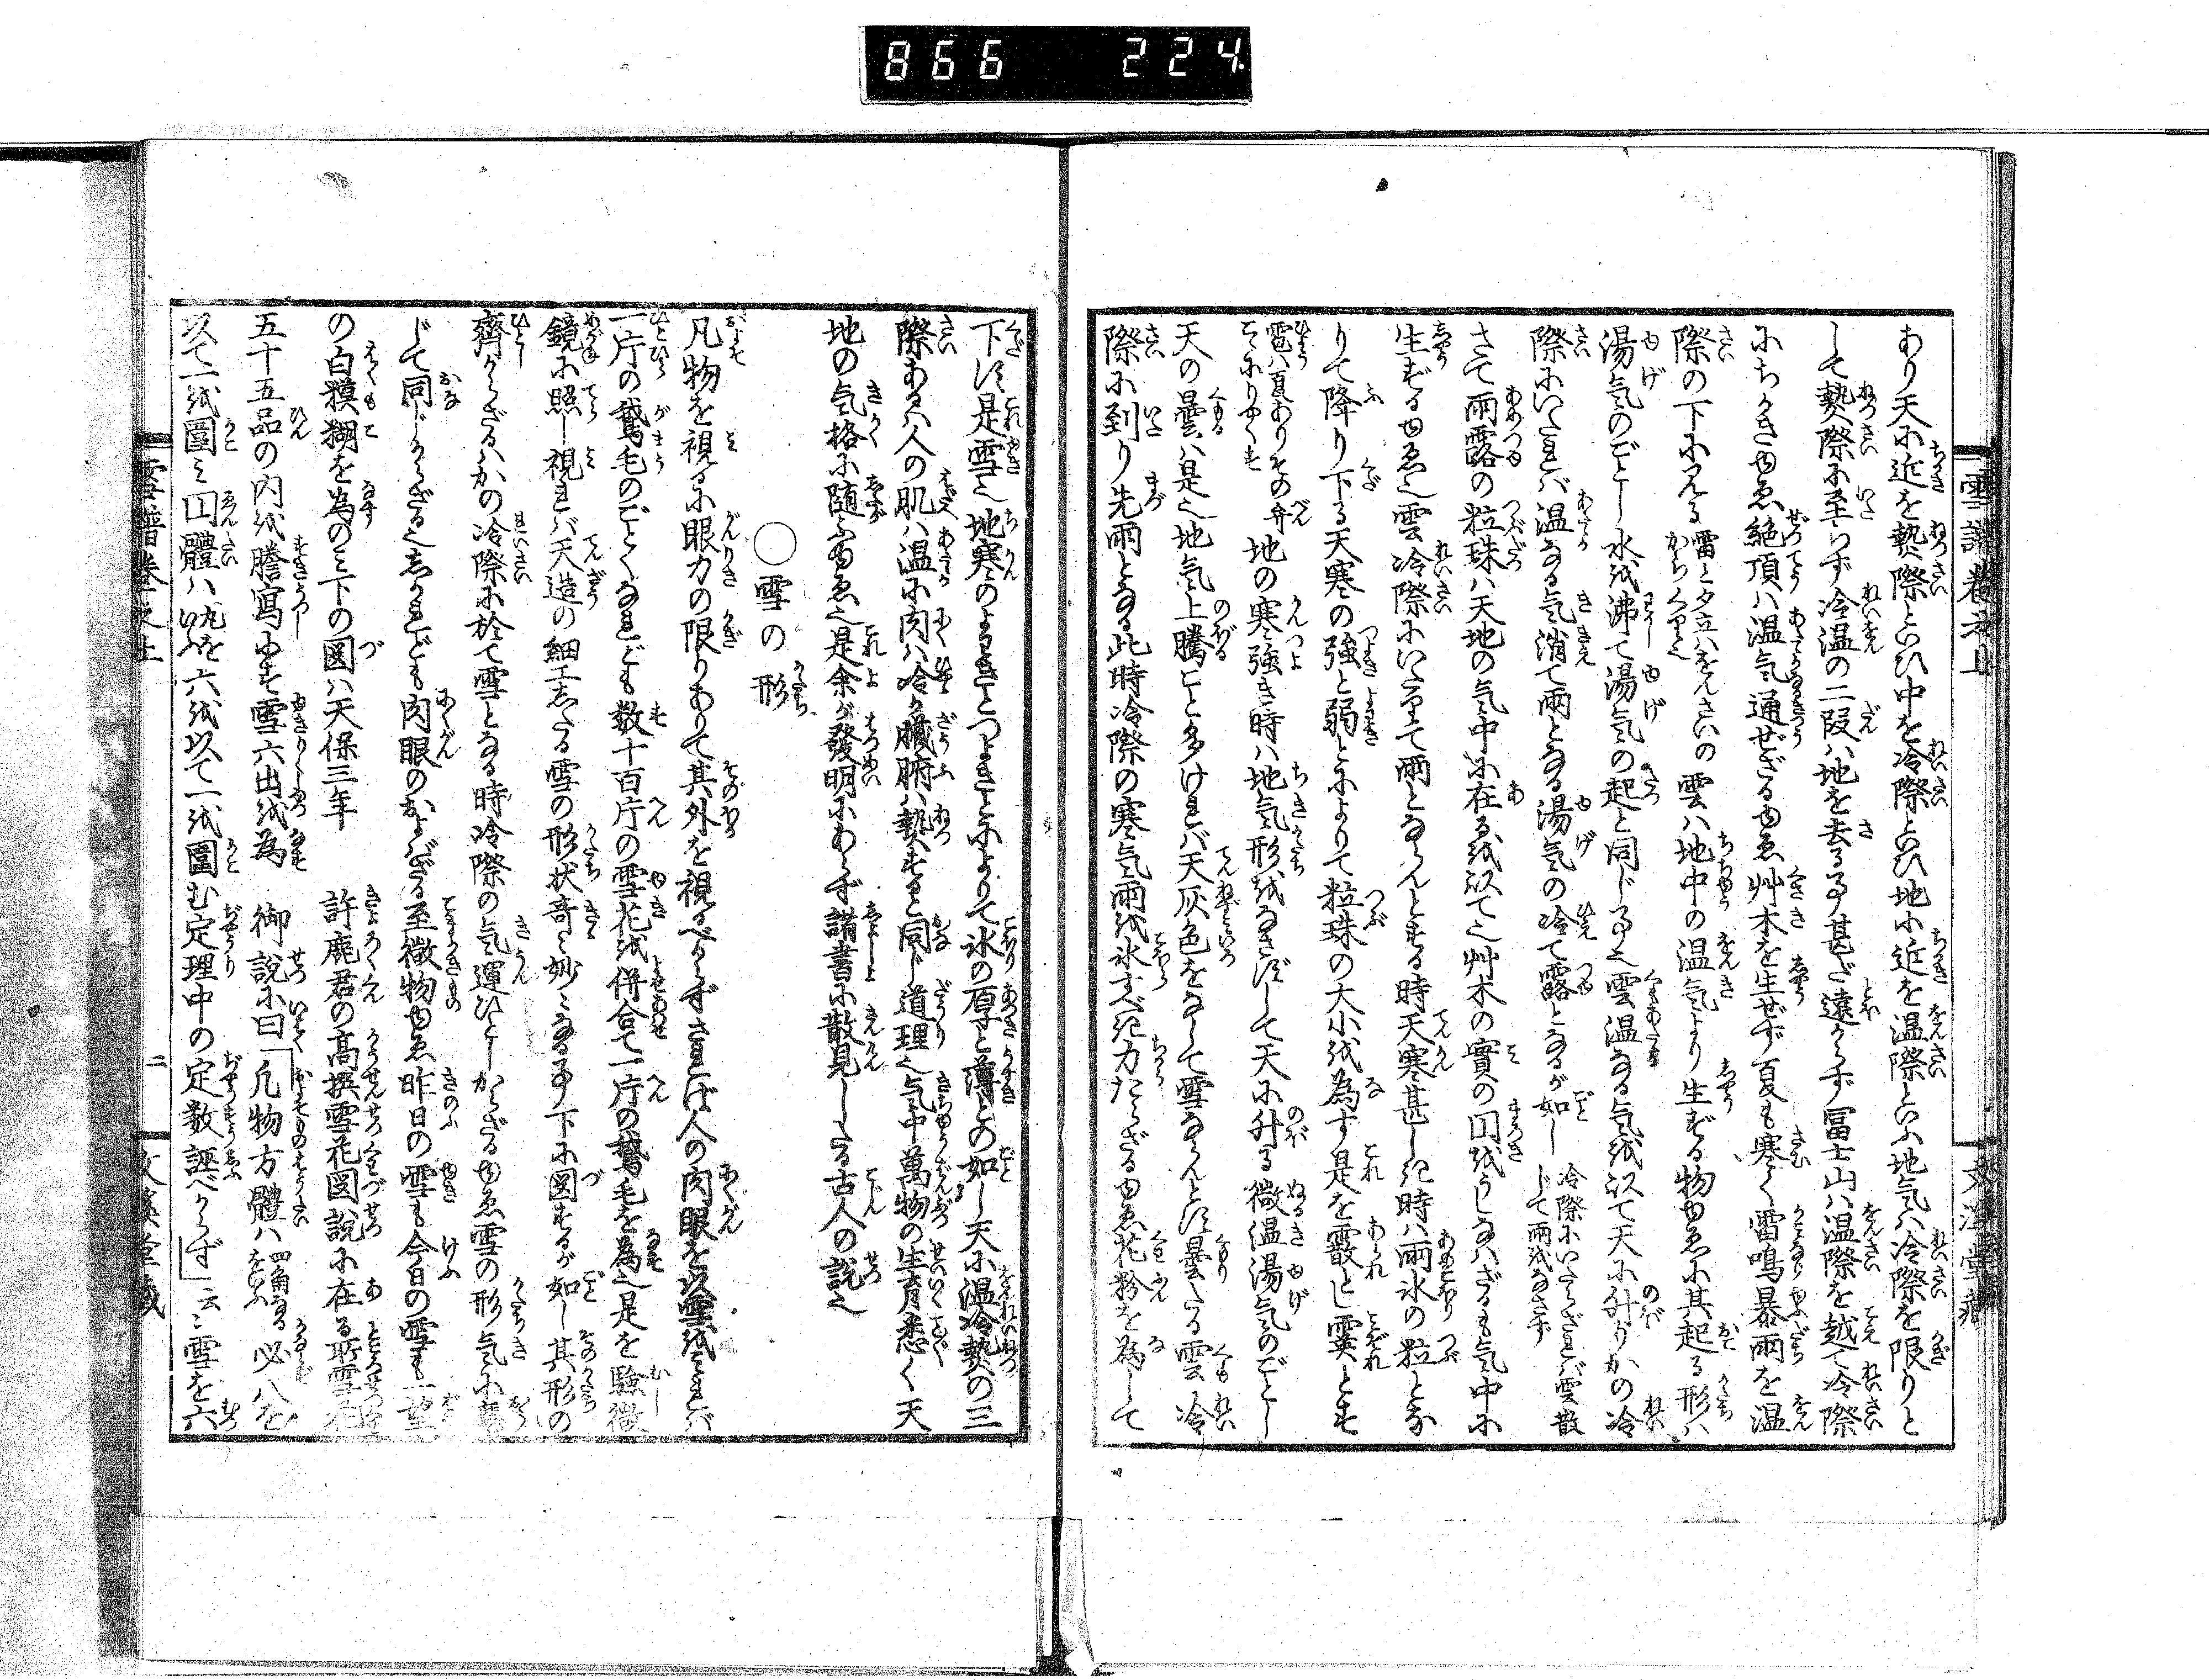 866 224
あり天に近を熱際といひ中を冷際といひ地に近を温際といふ地気は冷際を限りと
して熱際に至らず冷温の二段は地を去る事甚だ遠からず冨士山は温際を越て冷際
にちかきゆゑ絶頂は温気通ぜざるゆゑ艸木を生ぜず夏も寒く雷鳴暴雨を温
際の下に見る 雷と夕立はをんさいのからくり也 雲は地中の温気より生ずる物ゆゑに其起る形は
湯気のごとし水を沸て湯気の起と同じ事也雲温なる気を以て天に升りかの冷
際にいたれば温なる気消て雨となる湯気の冷て露となるが如し 冷際にいたらざれば雲散じて雨をなさず
さて雨露の粒珠は天地の気中に在るを以て也艸木の實の円をうしなはざるも気中に
生ずるゆゑ也雲冷際にいたりて雨とならんとする時天寒甚しき時は雨氷の粒とな
りて降り下る天寒の強と弱とによりて粒珠の大小を為す是を霰とし霙とす
雹は夏ありその弁こゝにりやくす 地の寒強き時は地気形をなさずして天に升る微温湯気のごとし
天の曇は是也地気上騰こと多ければ天灰色をなして雪ならんとす曇たる雲冷
際に到り先雨となる此時冷際の寒気雨を氷すべき力たらざるゆゑ花粉を為して
下す是雪也地寒のよわきとつよきとによりて氷の厚と薄との如し天に温冷熱の三
際あるは人の肌は温に肉は冷か臓腑は熱すると同じ道理也気中萬物の生育悉く天
地の気格に随ふゆゑ也是余が發明にあらず諸書に散見したる古人の説也
○雪の形
凡物を視るに眼力の限りありて其外を視るべからずされば人の肉眼を以雪をみれば
一片の鵞毛のごとくなれども数十百片の雪花を併合て一片の鵞毛を為也是を驗微
鏡に照し視れば天造の細工したる雪の形状奇々妙々なる事下に図するが如し其形の
齊からざるはかの冷際に於て雪となる時冷際の気運ひとしからざるゆゑ雪の形気に應
じて同じからざる也しかれども肉眼のおよばざる至微物ゆゑ昨日の雪も今日の雪も一望
の白糢糊を為のみ下の図は天保三年 許鹿君の高撰雪花図説に在る所雪花
五十五品の内を謄寫す雪六出を為 御説に曰「凡物方體は 四角なるをいふ 必八を
以て一を圍み円體は 丸をいふ 六を以て一を圍む定理中の定数誣べからず」云々雪を六
雪譜巻之上
文溪堂藏
雪譜巻之上
二
文溪堂藏